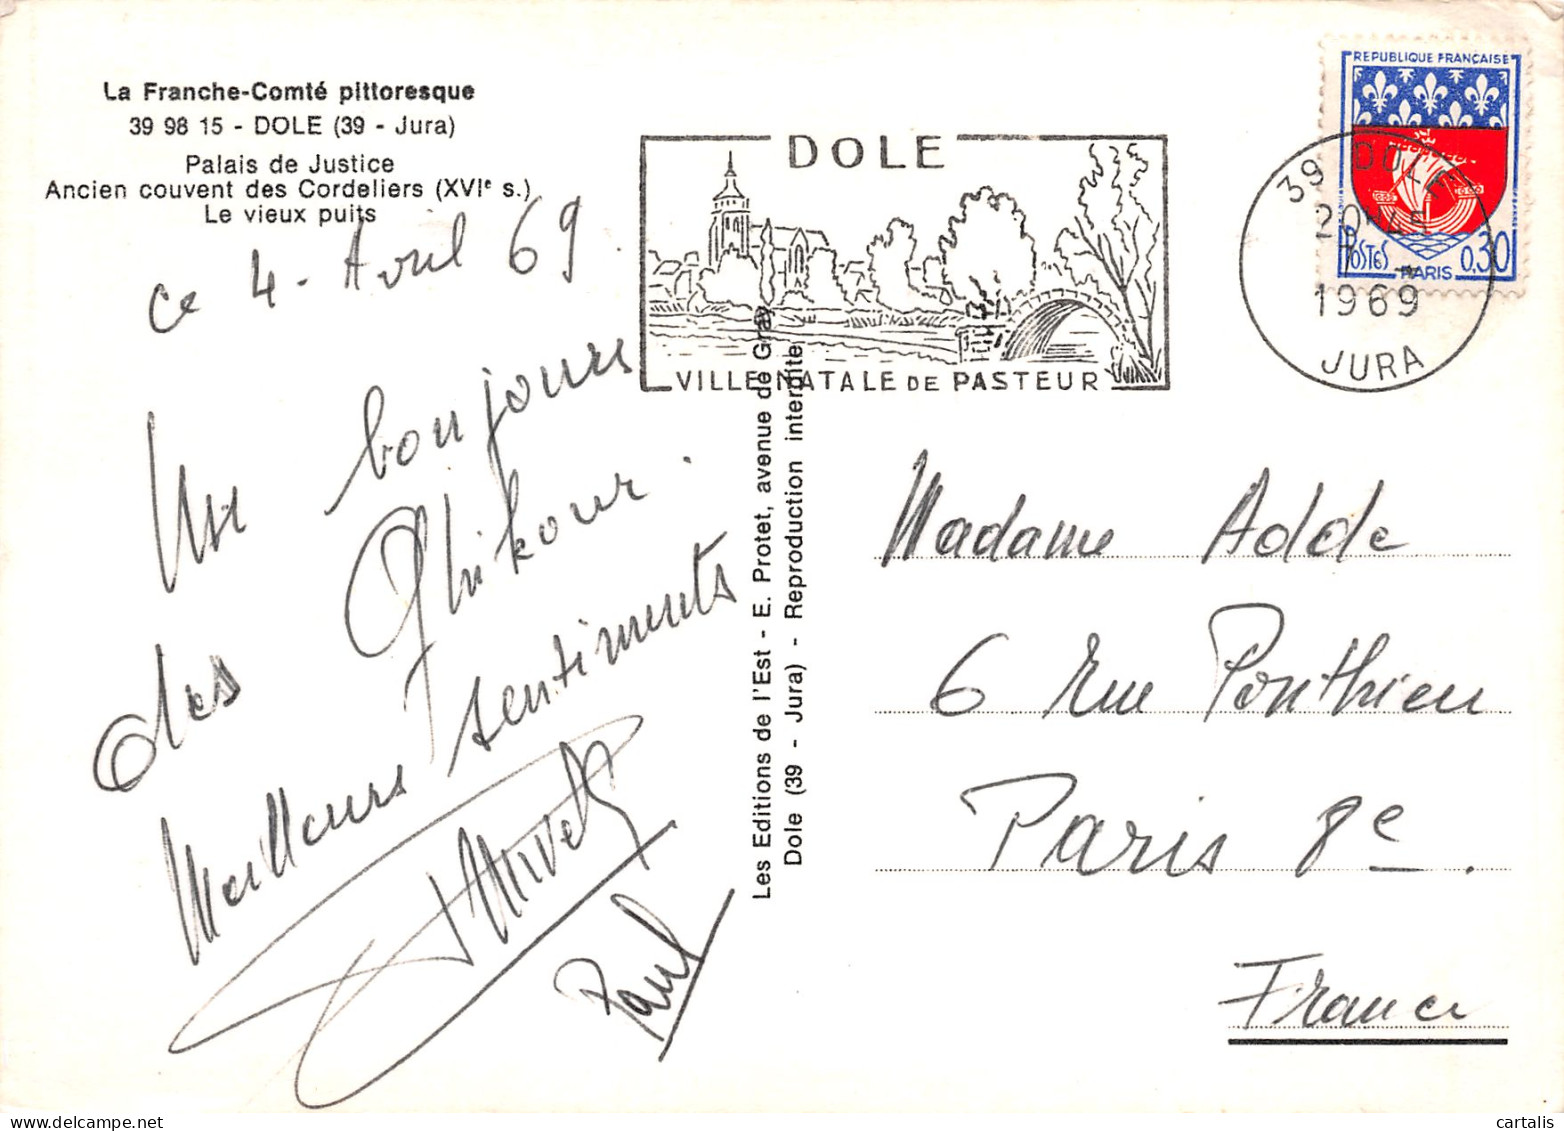 La Franche-Comté pittoresque
39 98 15 - DOLE (39 - Jura)
Palais de Justice
Ancien couvent des Cordeliers (XVIe s.)
Le vieux puits
ce 4 - Avril 69.
Un bonjour
des Ghikour.
Meilleurs sentiments
Paul
Les Editions de l'Est - E. Protet, avenue de Gray
Dole (39 - Jura) - Reproduction interdite
DOLE
VILLE NATALE DE PASTEUR
REPUBLIQUE FRANÇAISE
POSTES
PARIS
0,30
39 DOLE
1969
JURA
Madame Adde
6 rue Ponthieu
Paris 8e.
France
cartalis